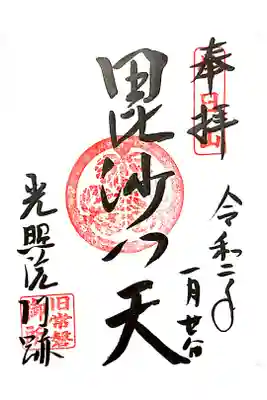 奉拝
令和二年
一月廿八日
毘沙門天
光照院門跡
旧常盤
御所